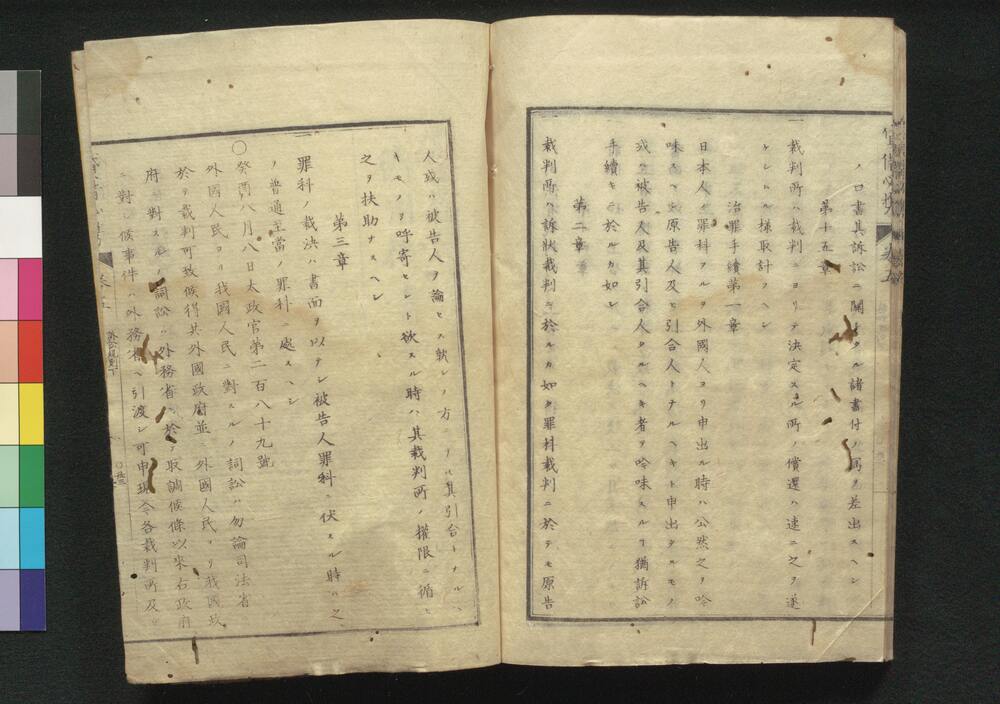 ノ口書其訴訟ニ關シタル諸書付ノ寫ヲ差出スヘシ
第十五章
一裁判所ハ裁判ニヨリテ決定スル所ノ償還ハ速ニ之ヲ遂
ケシムル様取計フヘシ
治罪手續第一章
日本人ノ罪科アルヲ外國人ヨリ申出ル時ハ公然之ヲ吟
味スヘシ原告人及ヒ引合人トナルヘキト申出タルモノ
或ハ被告人及其引合人タルヘキ者ヲ吟味スルヿ猶訴訟
手續ニ於ルカ如シ
第二章
裁判所ハ訴状裁判ニ於ルカ如ク罪科裁判ニ於テモ原告
人或ハ被告人ヲ論セス執レノ方ノ其引合トナルヘ
キモノヲ呼寄セント欲スル時ハ其裁判所ノ權限ニ循ヒ
之ヲ扶助ナスヘシ
第三章
一罪科ノ裁決ハ書面ヲ以テシ被告人罪科ニ伏スル時ハ之
ノ普通至當ノ罪科ニ處スヘシ
〇癸酉八月八日太政官第二百八十九號
外國人民ヨリ我國人民ニ對スルノ詞訟ハ勿論司法省
於テ裁判可致候得共外國政府並外國人民ヨリ我國政
府ニ對スルノ詞訟ハ外務省ニ於テ取調候條以來右政府
ニ對シ候事件ハ外務省ヘ引渡シ可申現今各裁判所及ヒ